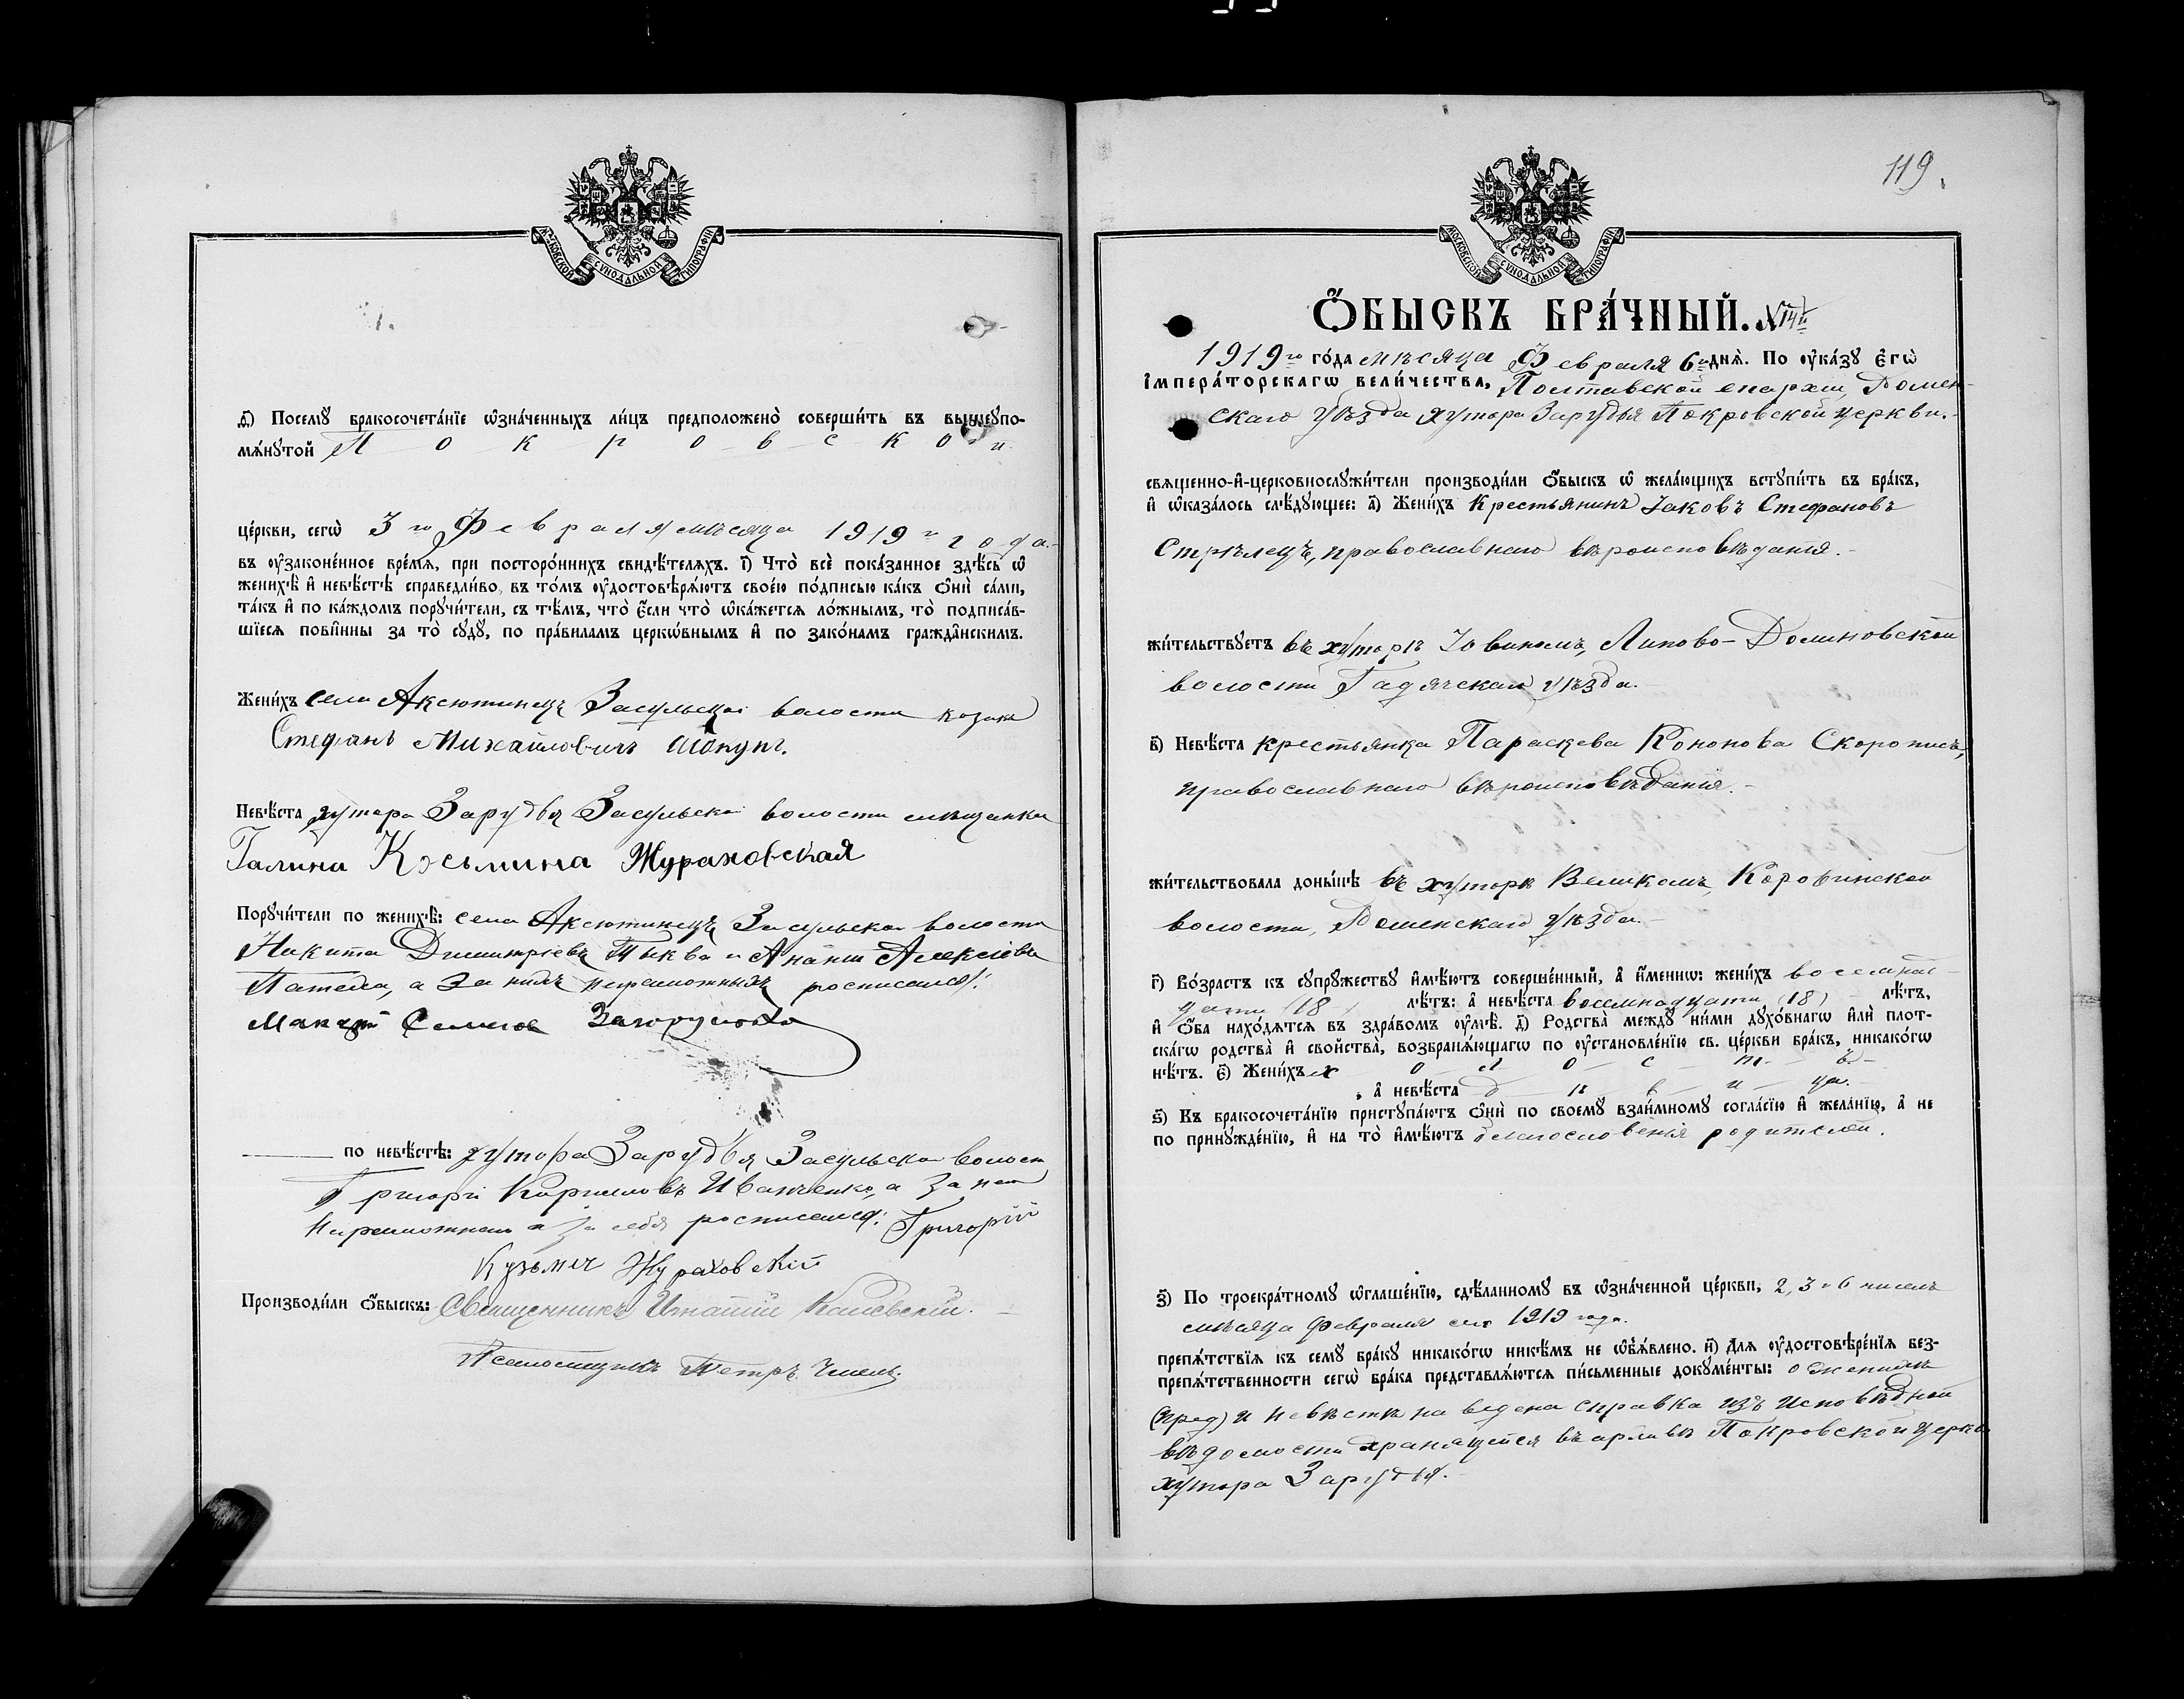 МОСКОВСКОЙ СУНОДАЛЬНОЙ ТИПОГРАФІИ
д҃) Посемꙋ̀ бракосочета́нїе ѡ҆зна́ченныхъ ли́цъ предположено̀ соверши́ть въ вышеꙋпо-
мѧ́нꙋтой Покровской
це́ркви, сегѡ̀ 3го Февраля мѣсяца 1919го года.
въ ᲂу҆законе́нное вре́мѧ, при посторо́ннихъ свидѣ́телѧхъ. і҃) Что̀ всѐ пока́занное здѣ́сь ѡ҆
женихѣ̀ и҆ невѣ́стѣ справедли́во, въ то́мъ ᲂу҆достовѣрѧ́ютъ свое́ю по́дписью ка́къ ѻ҆нѝ са́ми,
та́къ и҆ по ка́ждомъ порꙋчи́тели, съ тѣ́мъ, что̀ є҆́сли что̀ ѡ҆ка́жетсѧ ло́жнымъ, то̀ подписа́в-
шїесѧ пови́нны за то̀ сꙋдꙋ̀, по пра́виламъ церкѡ́внымъ и҆ по зако́намъ гражда́нскимъ.
Жени́хъ села Аксютинецъ Засульской волости козакъ
Стефанъ Михайловичъ
Невѣ́ста хутора Зарудья Засульской волости мѣщанка
Галина Косьмина Жураховская
Порꙋчи́тели по женихѣ̀: села Аксютинецъ Засульской волости
Никита Димитріевъ Тыква и Ананій Алексіевъ
а за нихъ неграмотныхъ росписался:
Семенов
по невѣ́стѣ: хутора Зарудья Засульской волости
Григорій Кириловъ Иванченко, а за него
неграмотнаго и за себя росписался: Григорій
Кузьмич Жураховскій
Производи́ли ѻ҆́быскъ: Священникъ Игнатій
Псаломщикъ Петръ Чмель.
119.
МОСКОВСКОЙ СУНОДАЛЬНОЙ ТИПОГРАФІИ
Ѻ҆́БЫСКЪ БРА́ЧНЫЙ. №14й
1919го го́да мѣсяца Февраля 6го днѧ̀. По ᲂу҆ка́зꙋ є҆гѡ̀
і҆мпера́торскагѡ вели́чества, Полтавской епархіи, Ромен-
скаго уѣзда хутора Зарудья Покровской церкви.-
свѧще́нно-и҆-церковнослꙋжи́тели производи́ли ѻ҆́быскъ ѡ҆ жела́ющихъ встꙋпи́ть въ бра́къ,
и҆ ѡ҆каза́лось слѣ́дꙋющее: а҃) Жени́хъ Крестьянинъ Іаковъ Стефановъ
Стрѣлецъ, православнаго вѣроисповѣданія.-
жи́тельствꙋетъ въ хуторѣ Іовиномъ, Липово-Долиновской
волости Гадячскаго уѣзда.-
в҃) Невѣ́ста крестьянка Параскева Кононова Скоропись,
православнаго вѣроисповѣданія.-
жи́тельствовала доны́нѣ въ хуторѣ Великомъ, Коровинской
волости, Роменскаго уѣзда.-
г҃) Во́зрастъ къ сꙋпрꙋ́жествꙋ и҆мѣ́ютъ соверше́нный, а҆ и҆́меннѡ: жени́хъ восемнад-
цати (18) лѣ́тъ: а҆ невѣ́ста восемнадцати (18) лѣ́тъ,
и҆ ѻ҆́ба нахо́дѧтсѧ въ здра́вомъ ᲂу҆мѣ̀. д҃) Родства̀ междꙋ̀ ни́ми дꙋхо́внагѡ и҆лѝ плот-
ска́гѡ родства̀ и҆ свойства̀, возбранѧ́ющагѡ по ᲂу҆становле́нїю св. це́ркви бра́къ, никако́гѡ
нѣ́тъ. є҃) Жени́хъ холостъ
, а҆ невѣ́ста дѣвица.
ѕ҃) Къ бракосочета́нїю пристꙋпа́ютъ ѻ҆нѝ по своемꙋ̀ взаи́мномꙋ согла́сїю и҆ жела́нїю, а҆ не
по принꙋжде́нїю, и҆ на то̀ и҆мѣ́ютъ благословенія родителей.
з҃) По троекра́тномꙋ ѡ҆глаше́нїю, сдѣ́ланномꙋ въ ѡ҆зна́ченной це́ркви, 2, 3 и 6 чиселъ
мѣсяца Февраля сего 1919 года.
препѧ́тствїѧ къ семꙋ̀ бра́кꙋ никако́гѡ никѣ́мъ не ѡ҆б̾ѧ́влено. и҃) Для ᲂу҆достовѣре́нїѧ без-
препѧ́тственности сегѡ̀ бра́ка представлѧ́ютсѧ пи́сьменные докꙋме́нты: о женихѣ
(пред) и невѣстѣ наведена справка изъ исповѣдной
вѣдомости хранящейся въ архивѣ Покровской церкви
хутора Зарудья.-